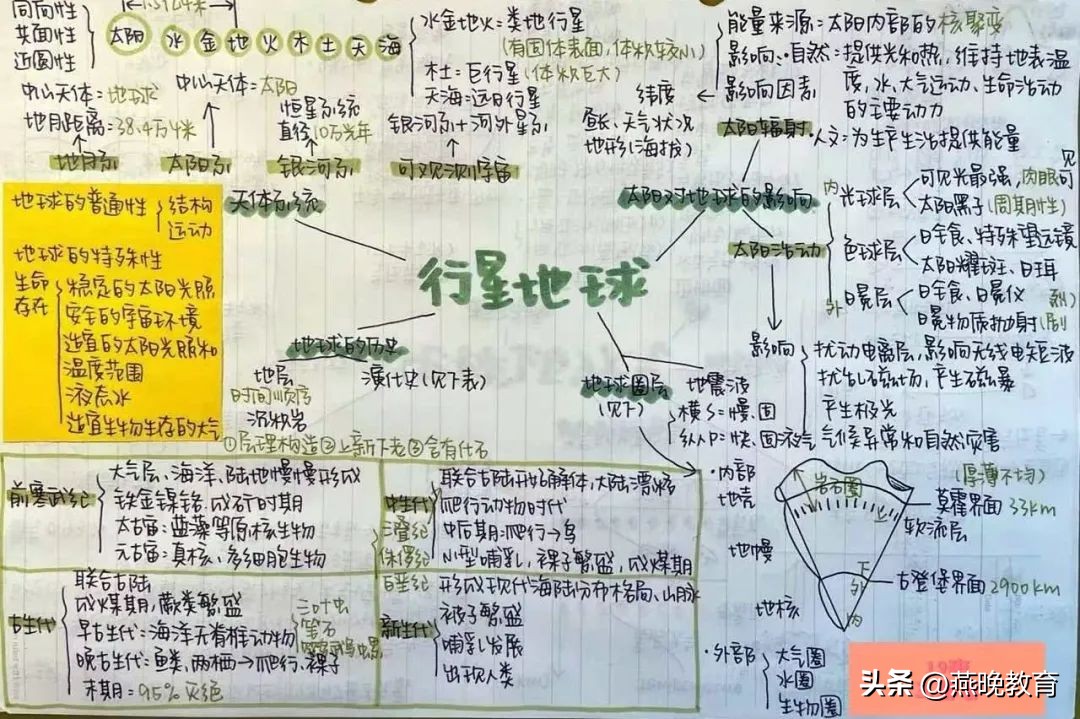 同向性
共面性
近圆性
太阳 水金地火木土天海
水金地火：类地行星
(有固体表面，体积较小)
木土：巨行星(体积巨大)
天海：远日行星
中心天体：地球
地月距离：38.4万千米
地月系
中心天体：太阳
太阳系
恒星系统
直径10万光年
银河系
银河系+河外星系
可观测宇宙
能量来源：太阳内部的核聚变
影响：自然：提供光和热，维持地表温
度，水、大气运动、生命活动
的主要动力
人文：为生产生活提供能量
影响因素
纬度
昼长、天气状况
地形(海拔)
太阳辐射
天体系统
太阳对地球的影响
太阳活动
内
光球层
可见光最强，肉眼可见
太阳黑子(周期性)
色球层
日全食、特殊望远镜
太阳耀斑、日珥
外
日冕层
日全食、日冕仪
日冕物质抛射
影响
扰动电离层，影响无线电短波
扰乱磁场，产生磁暴
产生极光
气候异常和自然灾害
地球的普通性
结构
运动
地球的特殊性
生命
存在
稳定的太阳光照
安全的宇宙环境
适宜的太阳光照和
温度范围
液态水
适宜生物生存的大气
行星地球
地球的历史
地层
时间顺序
沉积岩
①层理构造②上新下老③含有化石
演化史(见下表)
地球圈层
(见下)
地震波
横S：慢、固
纵P：快、固液气
前寒武纪
大气层、海洋、陆地慢慢形成
铁金镍铬，成矿时期
太古宙：蓝藻等原核生物
元古宙：真核、多细胞生物
古生代
联合古陆
成煤期，蕨类繁盛
早古生代：海洋无脊椎动物
三叶虫
笔石
鹦鹉螺
晚古生代：鱼类，两栖→爬行、裸子
末期：95%灭绝
中生代
三叠纪
侏罗纪
白垩纪
联合古陆开始解体，大陆漂移
爬行动物时代
中后期：爬行→鸟
小型哺乳，裸子繁盛，成煤期
新生代
形成现代海陆分布格局、山脉
被子繁盛
哺乳发展
出现人类
·内部
地壳
地幔
地核
岩石圈
上
下
外
内
(厚薄不均)
莫霍界面 33km
软流层
古登堡界面 2900km
·外部
大气圈
水圈
生物圈
头条 @燕晚教育